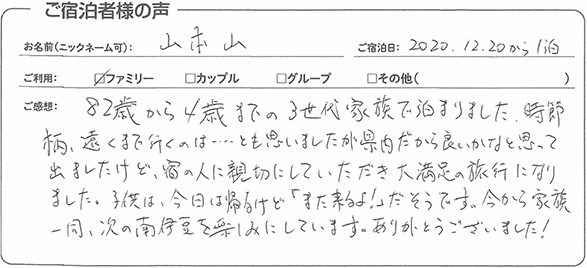 ご宿泊者様の声
お名前(ニックネーム可): 山本山 ご宿泊日: 2020.12.20から1泊
ご利用: ☑ファミリー □カップル □グループ □その他( )
ご感想: 82歳から4歳までの3世代家族で泊まりました。時節
柄、遠くまで行くのは……とも思いましたが県内だから良いかなと思って
出ましたけど、宿の人に親切にしていただき大満足の旅行になり
ました。子供は、今日は帰るけど「また来るよ!」だそうです。今から家族
一同、次の南伊豆を楽しみにしています。ありがとうございました!